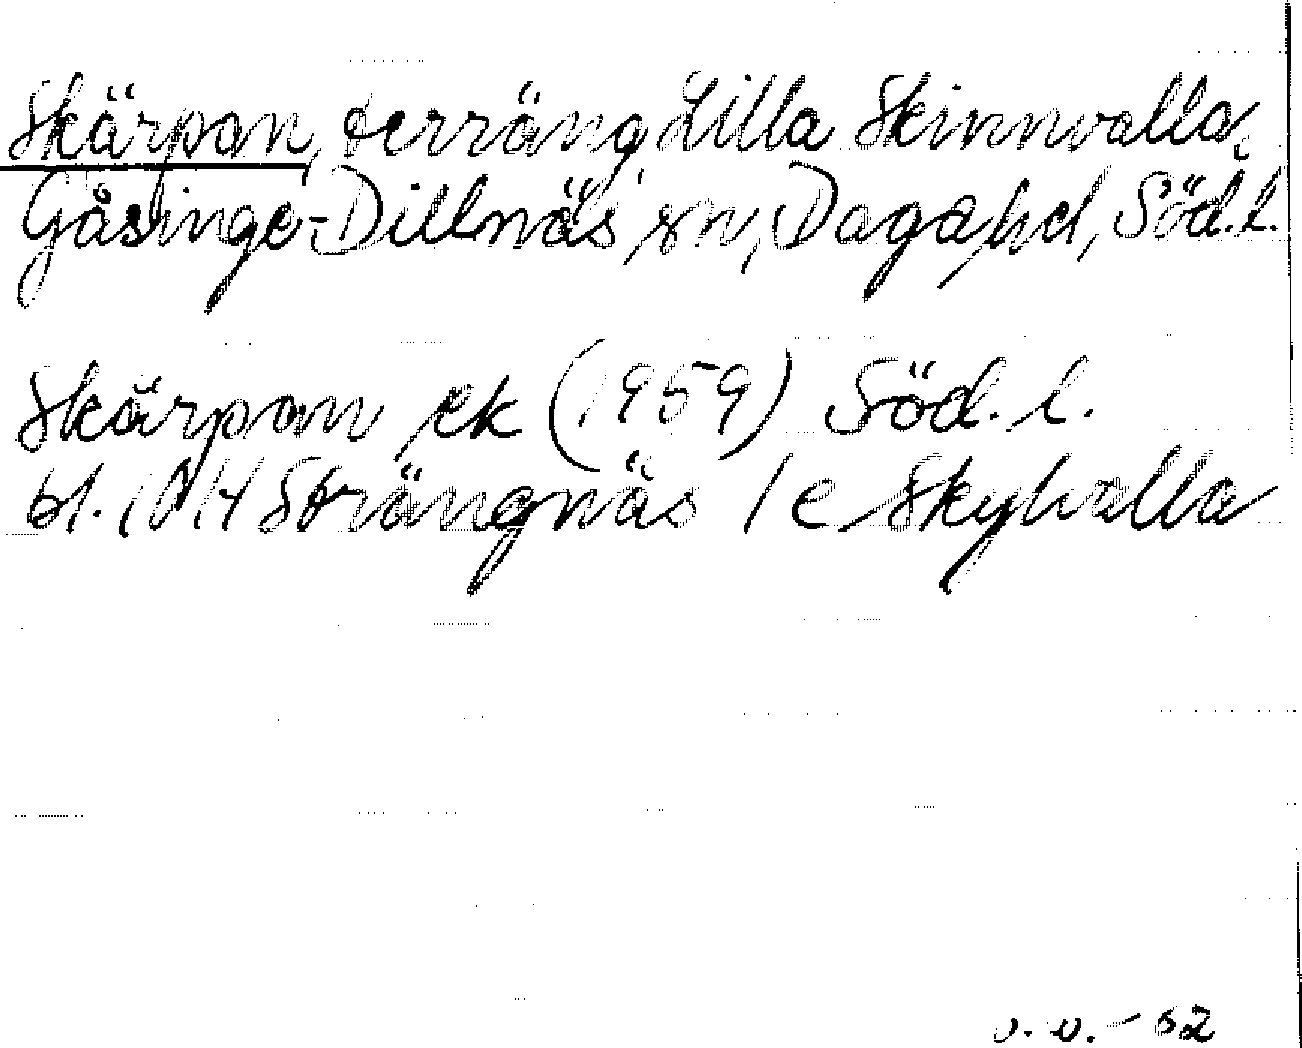 Skärpan, terräng Lilla Skinnvalla,
Gåsinge-Dillnäs sn, Daga hd, Söd.l.
Skärpan ek (1959) Söd. l.
bl. 10 H Strängnäs 1 e Skyvalla